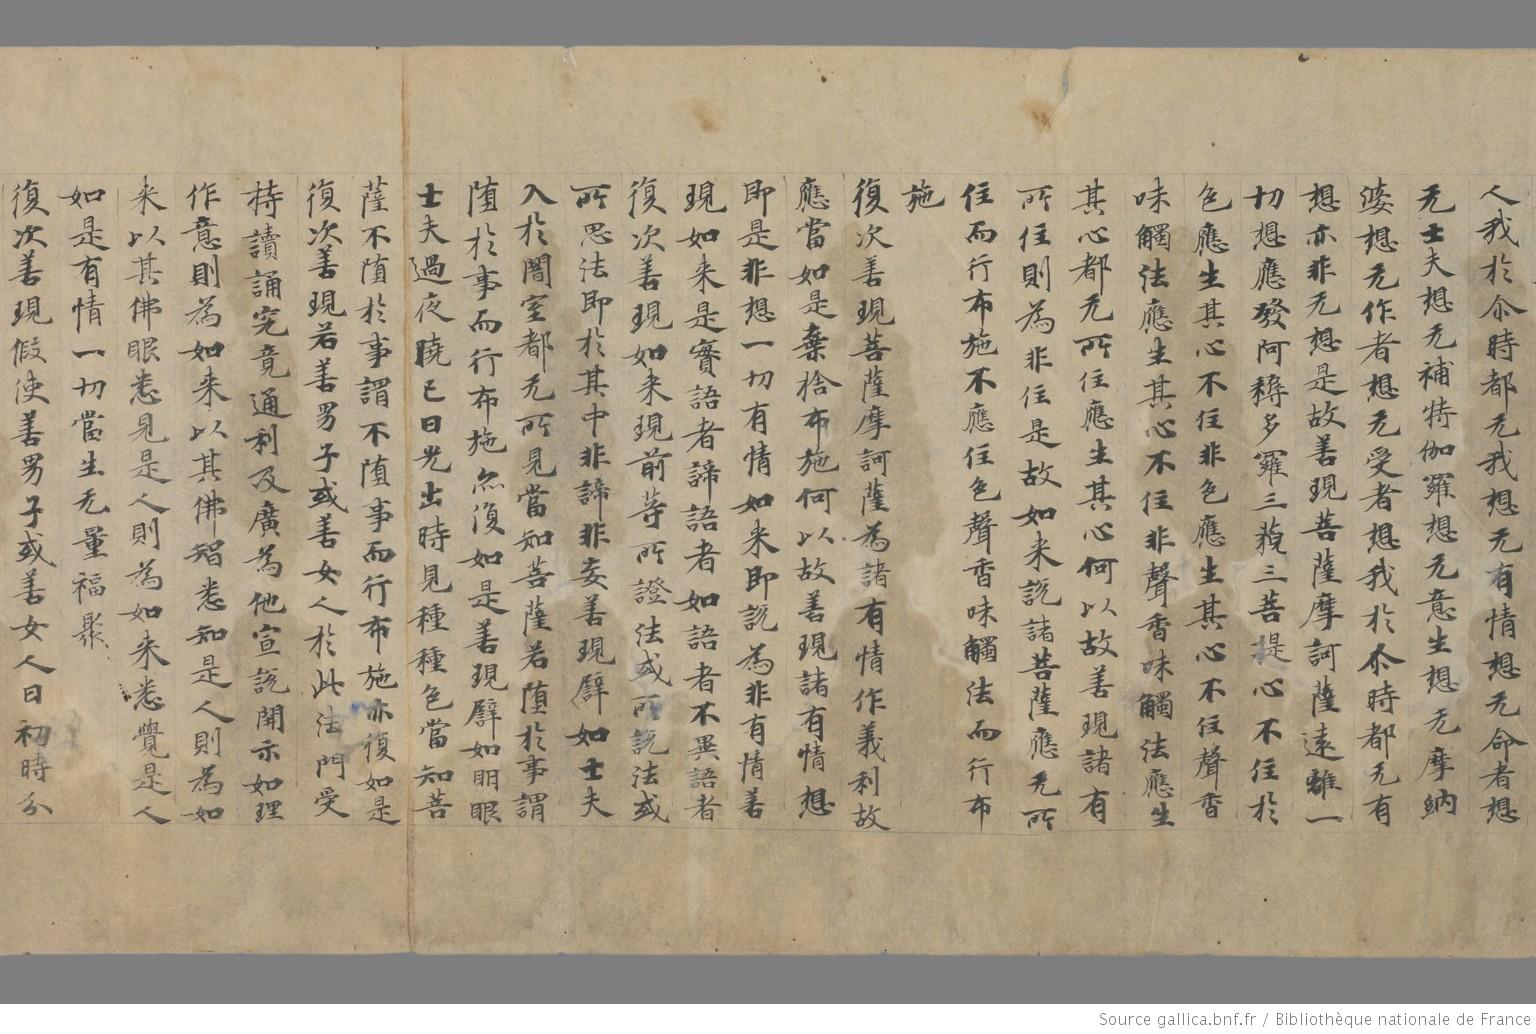 人我於尒時都无我想无有情想无命者想
无士夫想无補特伽羅想无意生想无摩納
婆想无作者想无受者想我於尒時都无有
想亦非无想是故善現菩薩摩訶薩遠離一
切想應發阿耨多羅三藐三菩提心不住於
色應生其心不住非色應生其心不住聲香
味觸法應生其心不住非聲香味觸法應生
其心都无所住應生其心何以故善現諸有
所住則為非住是故如来説諸菩薩應无所
住而行布施不應住色聲香味觸法而行布
施
復次善現菩薩摩訶薩為諸有情作義利故
應當如是棄捨布施何以故善現諸有情想
即是非想一切有情如来即説為非有情善
現如来是實語者諦語者如語者不異語者
復次善現如来現前等所證法或所説法或
所思法即於其中非諦非妄善現譬如士夫
入於闇室都无所見當知菩薩若堕於事謂
堕於事而行布施亦復如是善現譬如明眼
士夫過夜曉已日光出時見種種色當知菩
薩不堕於事謂不堕事而行布施亦復如是
復次善現若善男子或善女人於此法門受
持讀誦究竟通利及廣為他宣説開示如理
作意則為如来以其佛智悉知是人則為如
来以其佛眼悉見是人則為如来悉覺是人
如是有情一切當生无量福聚
復次善現假使善男子或善女人日初時分
Source gallica.bnf.fr / Bibliothèque nationale de France